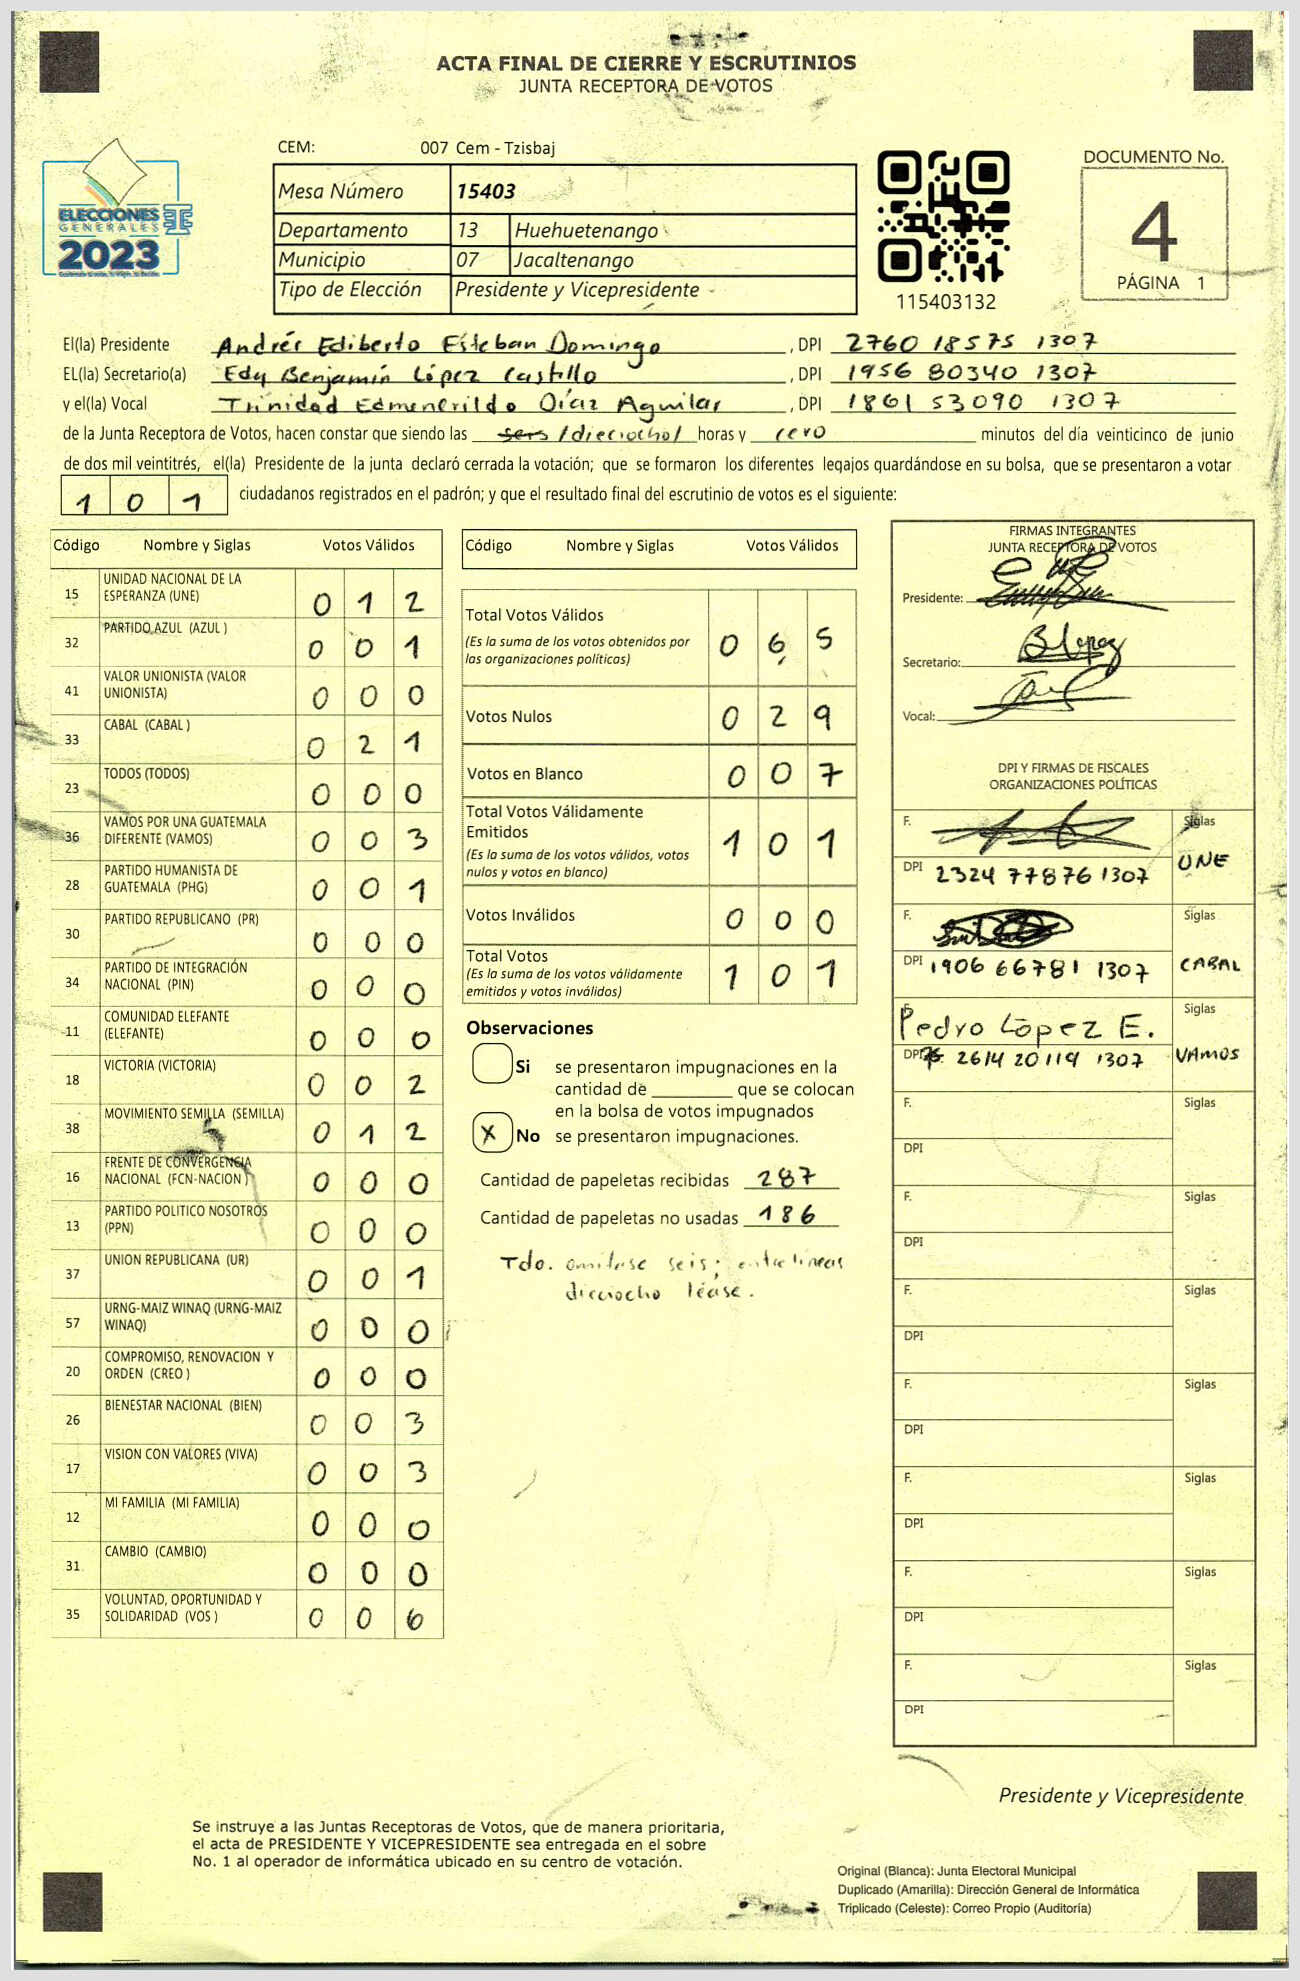 ACTA FINAL DE CIERRE Y ESCRUTINIOS
JUNTA RECEPTORA DE VOTOS
ELECCIONES
GENERALES
2023
CEM: 007 Cem - Tzisbaj
Mesa Número 15403
Departamento 13 Huehuetenango
Municipio 07 Jacaltenango
Tipo de Elección Presidente y Vicepresidente
115403132
DOCUMENTO No.
4
PÁGINA 1
El(la) Presidente Andrés Ediberto Esteban Domingo, DPI 2760 18575 1307
EL(la) Secretario(a) Edy Benjamín López Castillo, DPI 1956 80340 1307
y el(la) Vocal Trinidad Edmenerildo Díaz Aguilar, DPI 1861 53090 1307
de la Junta Receptora de Votos, hacen constar que siendo las seis /dieciocho/ horas y cero minutos del día veinticinco de junio
de dos mil veintitrés, el(la) Presidente de la junta declaró cerrada la votación; que se formaron los diferentes legajos quardándose en su bolsa, que se presentaron a votar
101 ciudadanos registrados en el padrón; y que el resultado final del escrutinio de votos es el siguiente:
Código Nombre y Siglas Votos Válidos
15 UNIDAD NACIONAL DE LA ESPERANZA (UNE) 012
32 PARTIDO AZUL (AZUL ) 001
41 VALOR UNIONISTA (VALOR UNIONISTA) 000
33 CABAL (CABAL ) 021
23 TODOS (TODOS) 000
36 VAMOS POR UNA GUATEMALA DIFERENTE (VAMOS) 003
28 PARTIDO HUMANISTA DE GUATEMALA (PHG) 001
30 PARTIDO REPUBLICANO (PR) 000
34 PARTIDO DE INTEGRACIÓN NACIONAL (PIN) 000
11 COMUNIDAD ELEFANTE (ELEFANTE) 000
18 VICTORIA (VICTORIA) 002
38 MOVIMIENTO SEMILLA (SEMILLA) 012
16 FRENTE DE CONVERGENCIA NACIONAL (FCN-NACION ) 000
13 PARTIDO POLITICO NOSOTROS (PPN) 000
37 UNION REPUBLICANA (UR) 001
57 URNG-MAIZ WINAQ (URNG-MAIZ WINAQ) 000
20 COMPROMISO, RENOVACION Y ORDEN (CREO ) 000
26 BIENESTAR NACIONAL (BIEN) 003
17 VISION CON VALORES (VIVA) 003
12 MI FAMILIA (MI FAMILIA) 000
31 CAMBIO (CAMBIO) 000
35 VOLUNTAD, OPORTUNIDAD Y SOLIDARIDAD (VOS ) 006
Código Nombre y Siglas Votos Válidos
Total Votos Válidos 065
(Es la suma de los votos obtenidos por
las organizaciones políticas)
Votos Nulos 029
Votos en Blanco 007
Total Votos Válidamente
Emitidos 101
(Es la suma de los votos válidos, votos
nulos y votos en blanco)
Votos Inválidos 000
Total Votos 101
(Es la suma de los votos válidamente
emitidos y votos inválidos)
Observaciones
Si se presentaron impugnaciones en la
cantidad de ________ que se colocan
en la bolsa de votos impugnados
X No se presentaron impugnaciones.
Cantidad de papeletas recibidas 287
Cantidad de papeletas no usadas 186
Tdo. omitase seis; entre lineas
dieciocho léase.
FIRMAS INTEGRANTES
JUNTA RECEPTORA DE VOTOS
Presidente:
Secretario: B López
Vocal:
DPI Y FIRMAS DE FISCALES
ORGANIZACIONES POLÍTICAS
F. Siglas
DPI 2324 77876 1307 UNE
F. Siglas
DPI 1906 66781 1307 CABAL
F. Pedro López E. Siglas
DPI 2614 20119 1307 VAMOS
F. Siglas
DPI
F. Siglas
DPI
F. Siglas
DPI
F. Siglas
DPI
F. Siglas
DPI
F. Siglas
DPI
F. Siglas
DPI
Presidente y Vicepresidente
Se instruye a las Juntas Receptoras de Votos, que de manera prioritaria,
el acta de PRESIDENTE Y VICEPRESIDENTE sea entregada en el sobre
No. 1 al operador de informática ubicado en su centro de votación.
Original (Blanca): Junta Electoral Municipal
Duplicado (Amarilla): Dirección General de Informática
Triplicado (Celeste): Correo Propio (Auditoría)